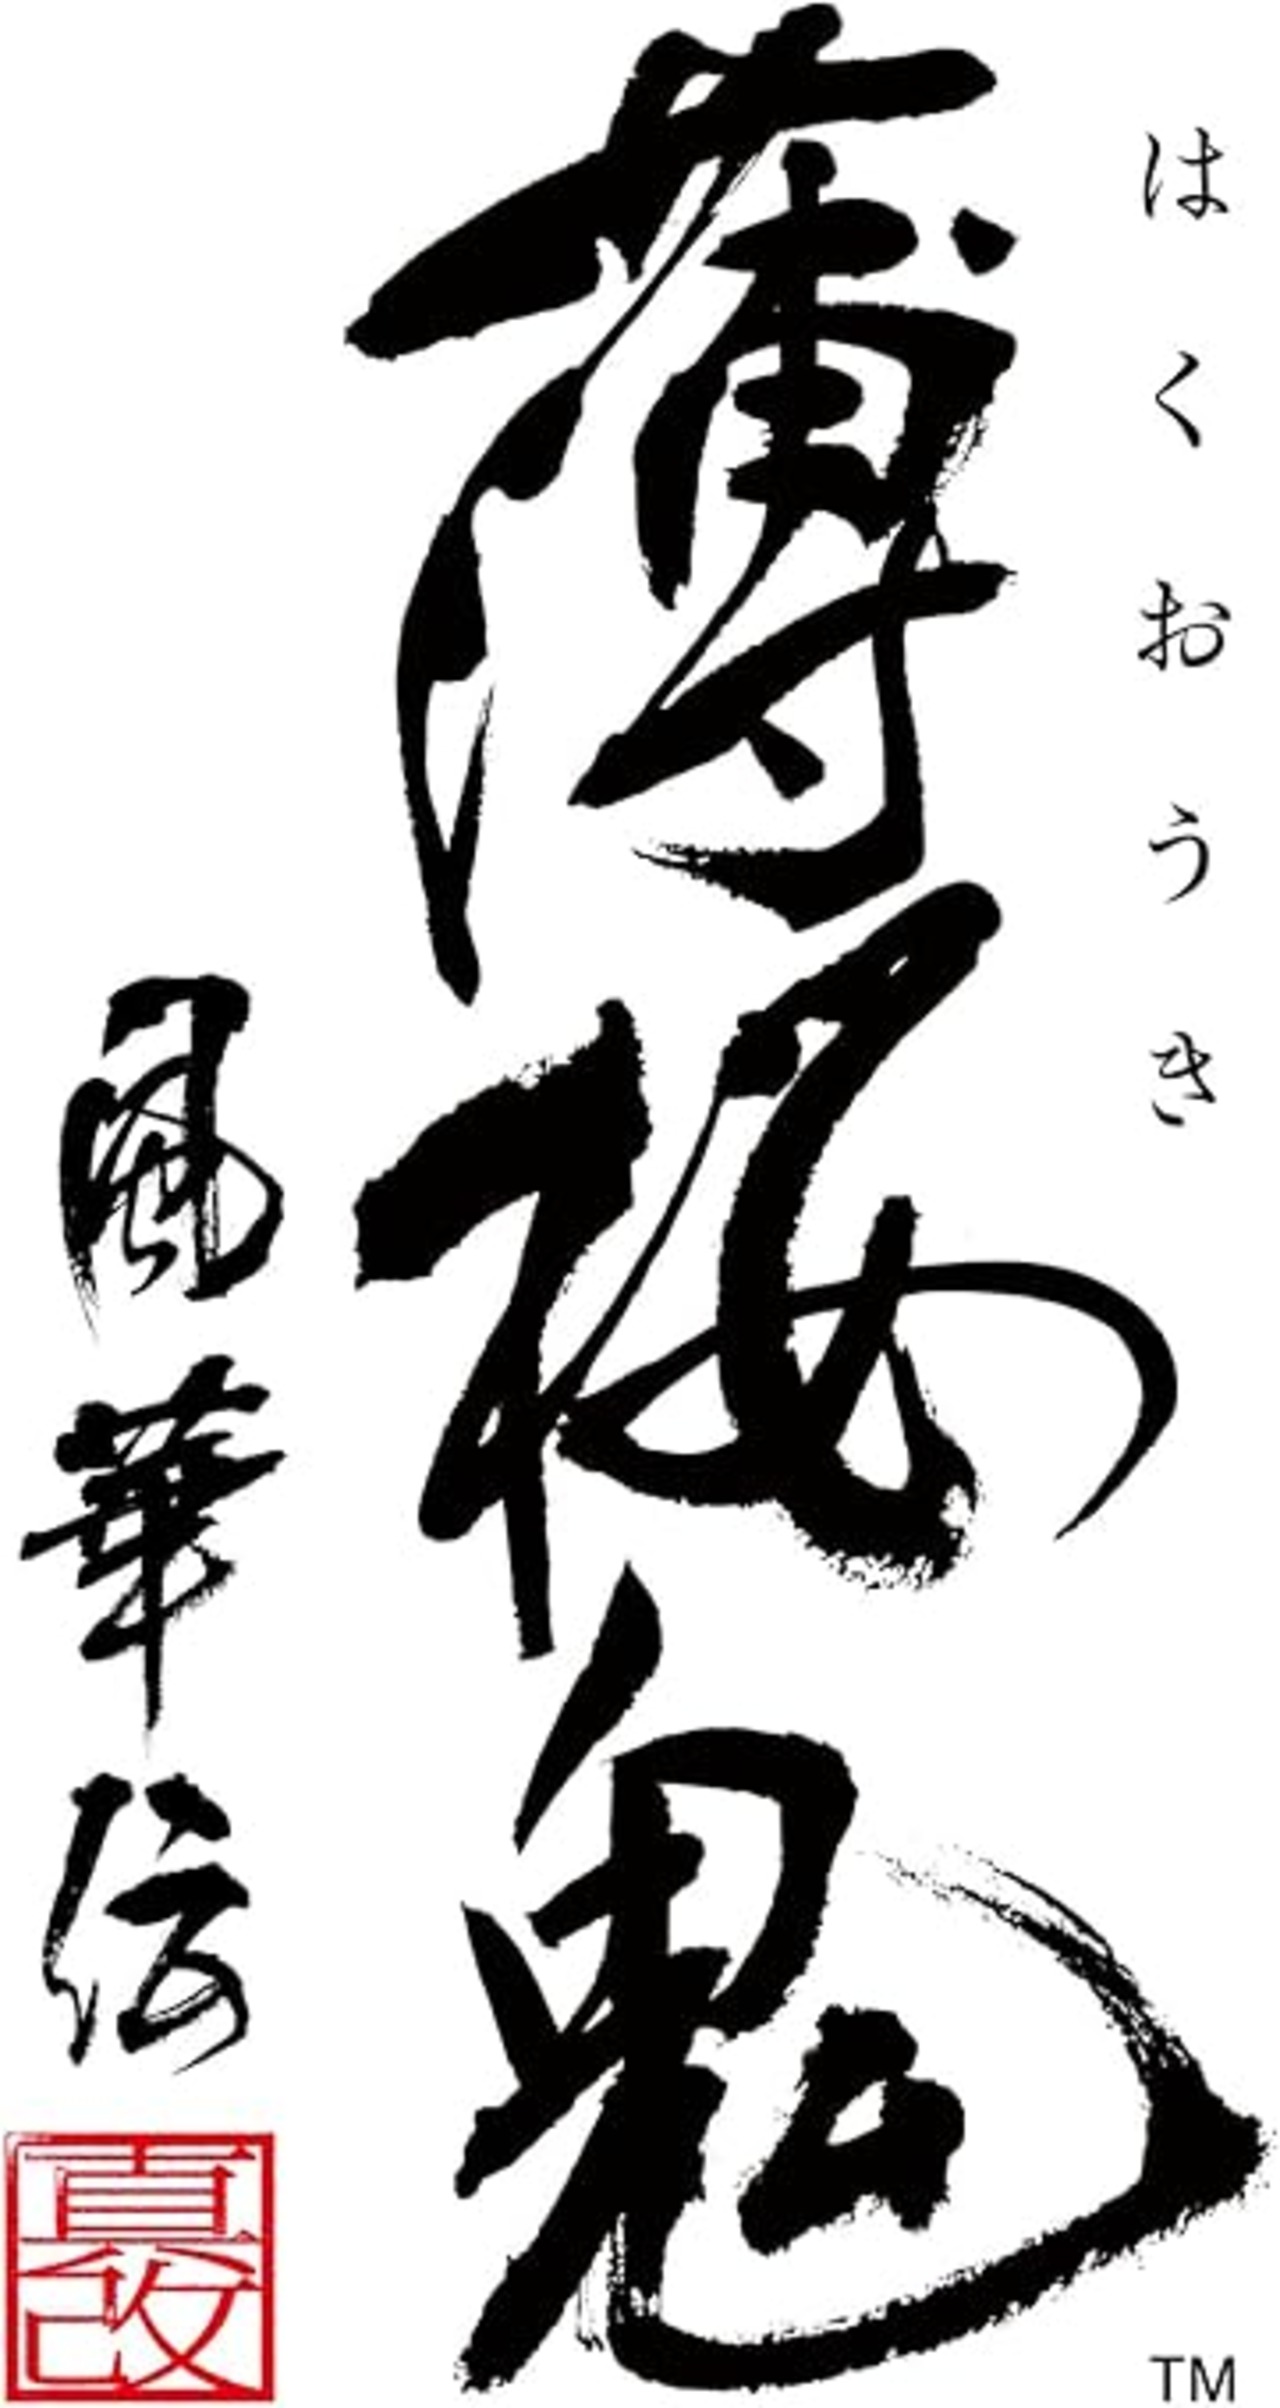 はくおうき
薄桜鬼
風華伝
真改
TM